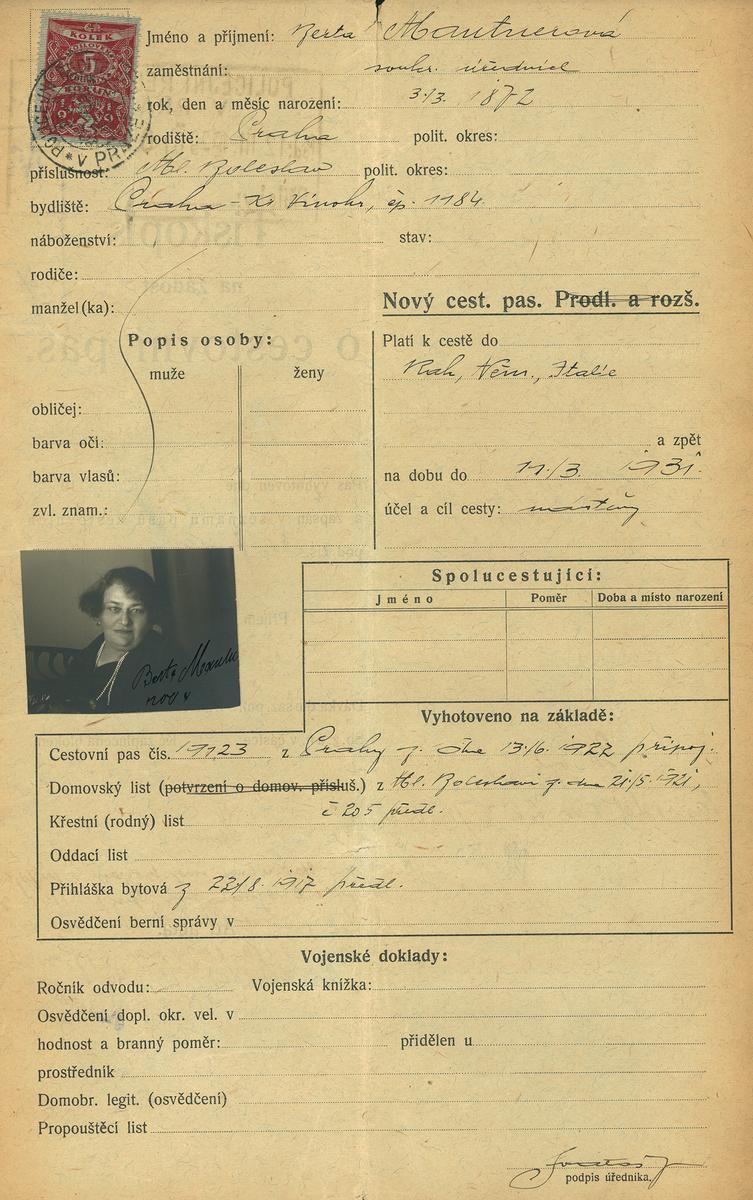 KOLEK
5
KORUN
1919
V PRAZE
Jméno a příjmení: Berta Mautnerová
zaměstnání: soukr. úřednice
rok, den a měsíc narození: 3./3. 1872
rodiště: Praha polit. okres:
příslušnost: Ml. Boleslav polit. okres:
bydliště: Praha - XII Vinohr., čp. 1184
náboženství: stav:
rodiče:
manžel(ka):
Nový cest. pas. Prodl. a rozš.
Popis osoby:
muže ženy
obličej:
barva očí:
barva vlasů:
zvl. znam.:
Platí k cestě do
Rak., Něm., Italie
a zpět
na dobu do 11./3. 1931.
účel a cíl cesty:
Berta Mautnerová
Spolucestující:
Jméno Poměr Doba a místo narození
Vyhotoveno na základě:
Cestovní pas čís. 19123 z Prahy z dne 13./6. 1922 připoj.
Domovský list (potvrzení o domov. přísluš.) z Ml. Boleslavi z dne 21/5. 1921,
č 205 předl.
Křestní (rodný) list
Oddací list
Přihláška bytová z 22/8. 1917 předl.
Osvědčení berní správy v
Vojenské doklady:
Ročník odvodu: Vojenská knížka:
Osvědčení dopl. okr. vel. v
hodnost a branný poměr: přidělen u
prostředník
Domobr. legit. (osvědčení)
Propouštěcí list
podpis úředníka.